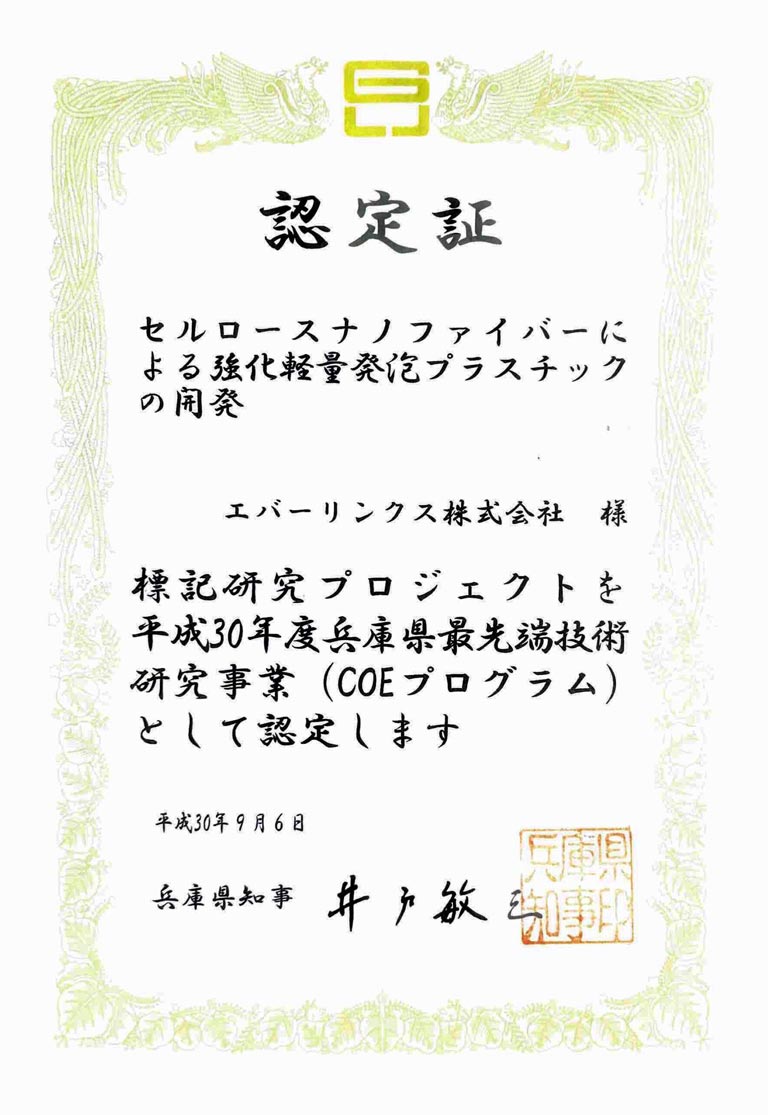 認定証
セルロースナノファイバーに
よる強化軽量発泡プラスチック
の開発
エバーリンクス株式会社 様
標記研究プロジェクトを
平成30年度兵庫県最先端技術
研究事業（COEプログラム）
として認定します
平成30年9月6日
兵庫県知事 井戸敏三
兵庫県
知事印